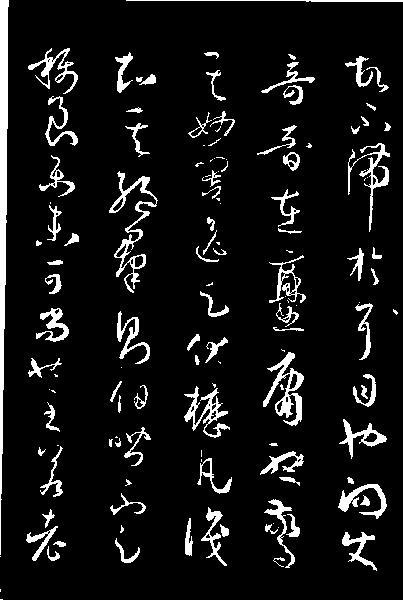 故不滯於耳目也向使
奇音在爨庸聽驚
其妙響逸足伏櫪凡識
知其絕群則伯喈不足
稱良樂未可尚也至若老